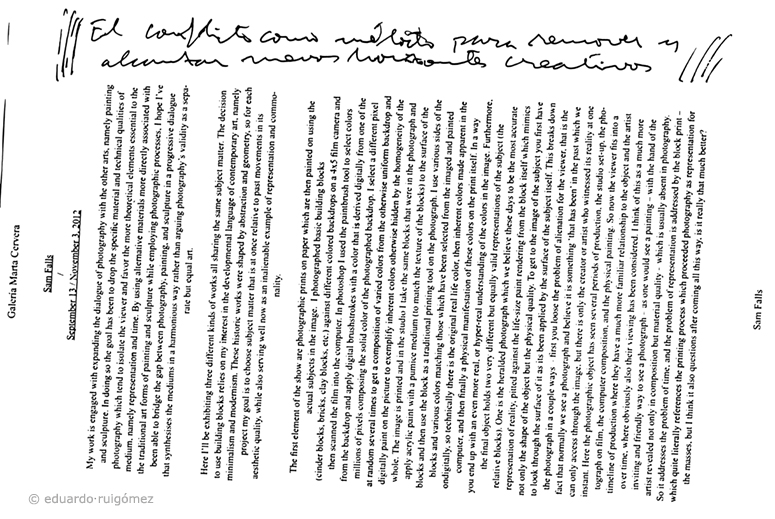 El conflicto como método para remover y
alcanzar nuevos horizontes creativos
Galería Marta Cervera
Sam Falls
/
September 13 / November 1, 2012
My work is engaged with expanding the dialogue of photography with the other arts, namely painting
and sculpture. In doing so the goal has been to drop the specific material and technical qualities of
photography which tend to isolate the viewer and favor the more theoretical elements essential to the
medium, namely representation and time. By using alternative materials more directly associated with
the traditional art forms of painting and sculpture while employing photographic processes, I hope I've
been able to bridge the gap between photography, painting, and sculpture in a progressive dialogue
that synthesises the mediums in a harmonious way rather than arguing photography's validity as a sepa-
rate but equal art.
Here I'll be exhibiting three different kinds of works all sharing the same subject matter. The decision
to use building blocks relies on my interest in the developmental language of contemporary art, namely
minimalism and modernism. These historic works were shaped by abstraction and geometry, so for each
project my goal is to choose subject matter that is at once relative to past movements in its
aesthetic quality, while also serving well now as an malienable example of representation and commo-
nality.
The first element of the show are photographic prints on paper which are then painted on using the
actual subjects in the image. I photographed basic building blocks
(cinder blocks, bricks, clay blocks, etc.) against different colored backdrops on a 4x5 film camera and
then scanned the film into the computer. In photoshop I used the paintbrush tool to select colors
from the backdrop and apply digital brushstrokes with a color that is derived digitally from one of the
millions of pixels composing the solid color of the photographed backdrop. I select a different pixel
at random several times to get a composition of varied colors from the otherwise uniform backdrop and
digitally paint on the picture to exemplify inherent colors otherwise hidden by the homogeneity of the
whole. The image is printed and in the studio I take the same blocks that were in the photograph and
apply acrylic paint with a pumice medium (to match the texture of the blocks) to the surface of the
blocks and then use the block as a traditional printing tool on the photograph. I use various sides of the
blocks and various colors matching those which have been selected from the imaged and painted
ondigitally, so technically there is the original real life color, then inherent colors made apparent in the
computer, and then finally a physical manifestation of these colors on the print itself. In a way
you end up with an even more real, or hyper-real understanding of the colors in the image. Furthermore,
the final object holds two very different but equally valid representations of the subject (the
relative blocks). One is the heralded photograph which we believe these days to be the most accurate
representation of reality, pitted against the life-size paint rendering from the block itself which mimics
not only the shape of the object but the physical quality. To get to the image of the subject you first have
to look through the surface of it as its been applied by the surface of the subject itself. This breaks down
the photograph in a couple ways - first you loose the problem of alienation for the viewer, that is the
fact that normally we see a photograph and believe it is something 'that has been' in the past which we
can only access through the image, but there is only the creator or artist who witnessed its reality at one
instant. Here the photographic object has seen several periods of production, the studio set-up, the pho-
tograph on film, the computer composition, and the physical painting. So now the viewer fits into a
timeline of production where they have a much more familiar relationship to the object and the artist
over time, where obviously also their viewing has been considered. I think of this as a much more
inviting and friendly way to see a photograph - as one would see a painting - with the hand of the
artist revealed not only in composition but material quality - which is usually absent in photography.
So it addresses the problem of time, and the problem of representation is addressed by the block print -
which quite literally references the printing process which proceeded photography as representation for
the masses, but I think it also questions after coming all this way, is it really that much better?
Sam Falls
© eduardo·ruigómez